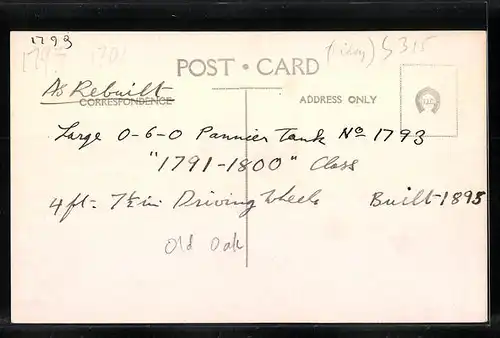 1793
1793 1301 (iday) S315
POST • CARD
As Rebuilt
CORRESPONDENCE ADDRESS ONLY
Large 0-6-0 Pannier Tank No 1793
"1791-1800" Class
4ft- 7½in Driving Wheels Built-1895
Old Oak